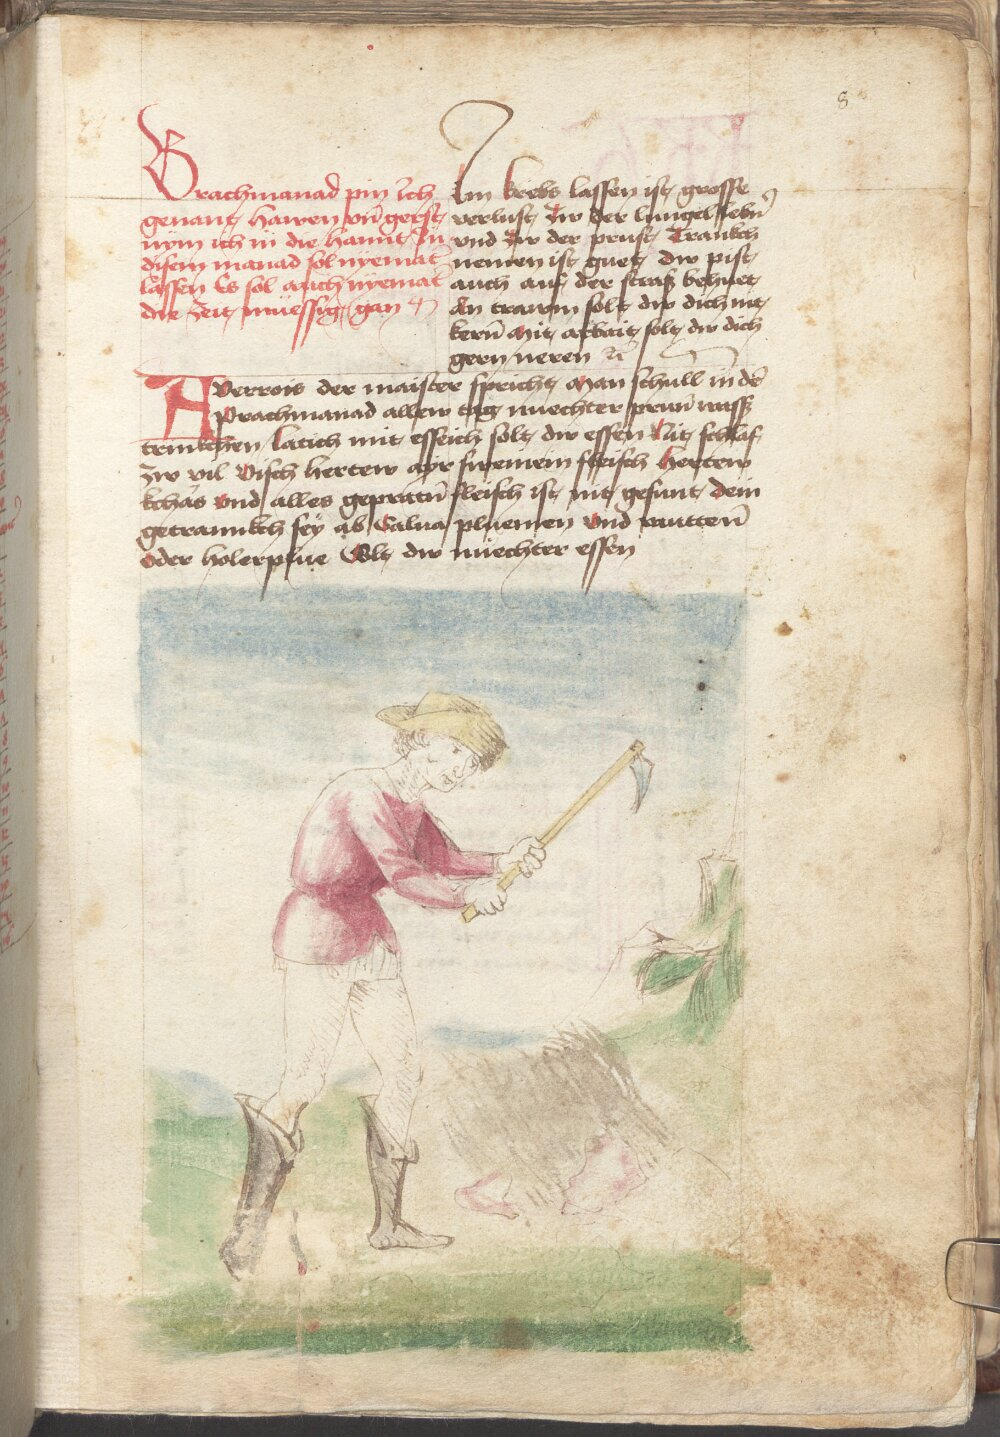 8
Brachmanad pin Ich
genant Hawen vn̄ gerst
nym ich in die hannt In
disem manad sol nyemat
lassen Es sol auch nyemat
die zeit muessig gan
Im krebs lassen ist grosse
verlust Dw der lungel lebn̄
vnd Dw der prust Trankch
nemen ist guet dw pist
auch auf der strass behuet
An trawm solt dw dich nit
kern̄ Mit arbait solt dw dich
gern neren
Averrois der maister spricht Man schull in de
Prachmanad allew tag nuechter prun̄ wass
trinkchen latich mit esseich solt dw essen Nit schlaf
zw vil Visch hertew ayr sweinein fleisch Hertew
kchas vnd alles gepratn̄ fleisch ist nit gesunt dein
getrannkch sey ab Salua pluemen vnd rautten̄
oder holerplue Solt dw nuechter essen